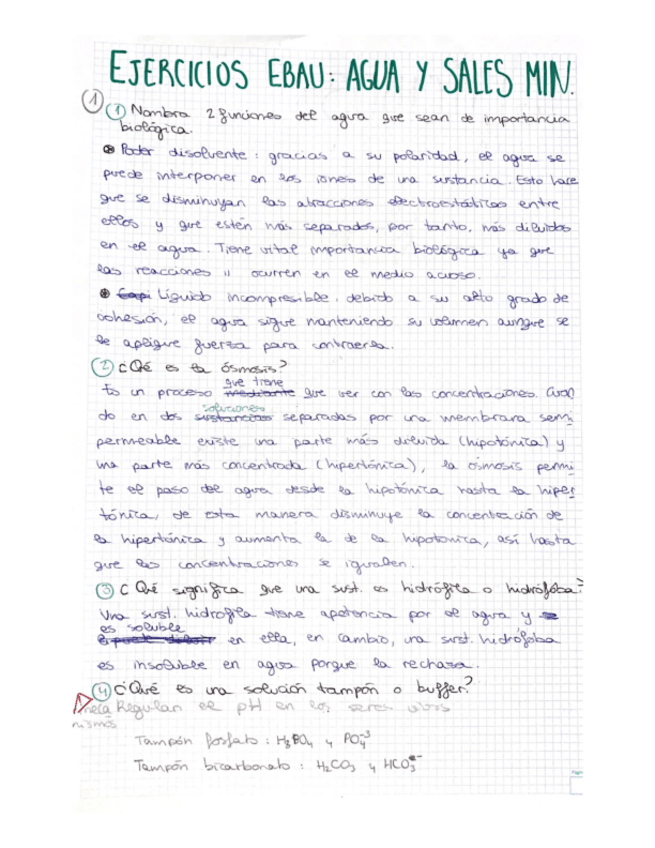 EJERCICIOS EBAU: AGUA Y SALES MIN.
① ① Nombra 2 funciones del agua que sean de importancia
biológica.
Poder disolvente: gracias a su polaridad, el agua se
puede interponer en los iones de una sustancia. Esto hace
que se disminuyan las atracciones electroestáticas entre
ellos y que estén más separados, por tanto, más diluidos
en el agua. Tiene vital importancia biológica ya que
las reacciones " ocurren en el medio acuoso.
Líquido incompresible. debido a su alto grado de
cohesión, el agua sigue manteniendo su volumen aunque se
le aplique fuerza para contraerla.
② ¿Qué es la ósmosis?
que tiene
Es un proceso mediante que ver con las concentraciones. Cuan
soluciones
do en dos sustancias separadas por una membrana semi
permeable existe una parte más diluida (hipotónica) y
una parte más concentrada (hipertónica), la ósmosis permi
te el paso del agua desde la hipotónica hasta la hiper
tónica, de esta manera disminuye la concentración de
la hipertónica y aumenta la de la hipotonica, así hasta
que las concentraciones se igualen.
③ ¿Qué significa que una sust. es hidrófila o hidrófoba?
Una sust. hidrofila tiene apetencia por el agua y
es soluble
en ella, en cambio, una sust. hidrófoba
es insoluble en agua porque la rechaza.
④ ¿Qué es una solución tampón o buffer?
Regulan el pH en los seres vivos
nismos
Tampón fosfato: H₃PO₄ y PO₄⁻³
Tampón bicarbonato: H₂CO₃ y HCO₃⁻